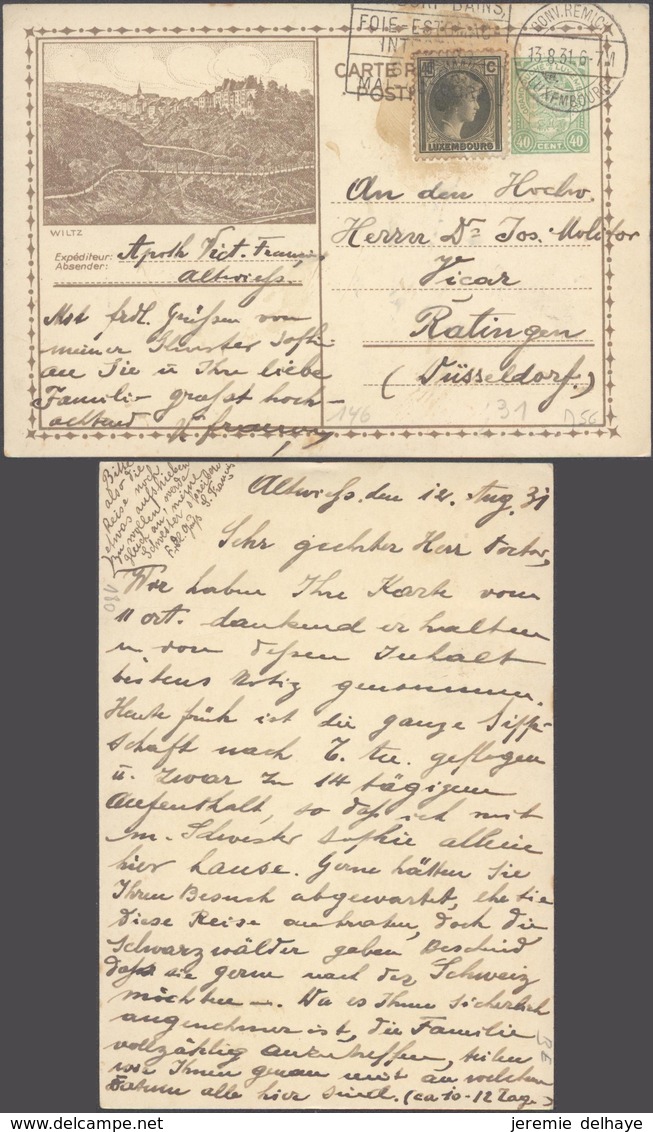 BAINS,
FOIE - ESTOMAC
INTE
MA
CARTE
POST
40 C
LUXEMBOURG
LUXEMBOURG
13.8.31.6-7M
LUXEMBOURG
40 CENT. 40
WILTZ
Expéditeur:
Absender:
Apoth Vict. Franç
Altwies.
An den Hochw.
Herrn Dr Jos. Molitor
Vicar
Ratingen
(Düsseldorf.)
Mit frdl. Grüßen von
meiner Schwester Soph-
an Sie u Ihre liebe
Familie grüßt hoch-
achtend
146
31
D56
Bitte
also die
Reise noch
etwas aufschieben
zu wollen, werde
gleich an meine
Schwester schreiben
180
Altwies, den 12. Aug. 31
Sehr geehrter Herr Doctor,
Wir haben Ihre Karte vom
11 ort. dankend erhalten
u. von dessen Inhalt
bestens Notiz genommen.
Heute früh ist die ganze Sipp-
schaft nach geflogen
u. zwar zu 14 tägigem
Aufenthalt, so daß ich mit
m. Schwester Sophie alleine
hier hause. Gerne hätten Sie
Ihren Besuch abgewartet, ehe sie
diese Reise antraten, doch die
Schwarzwälder gaben Bescheid
daß sie gerne nach der Schweiz
möchten. Da es Ihnen sicherlich
angenehmer ist, die Familie
vollzählig anzutreffen, teilen
wir Ihnen genau mit an welchem
Datum alle hier sind. (ca 10-12 Tage)
jeremie delhaye